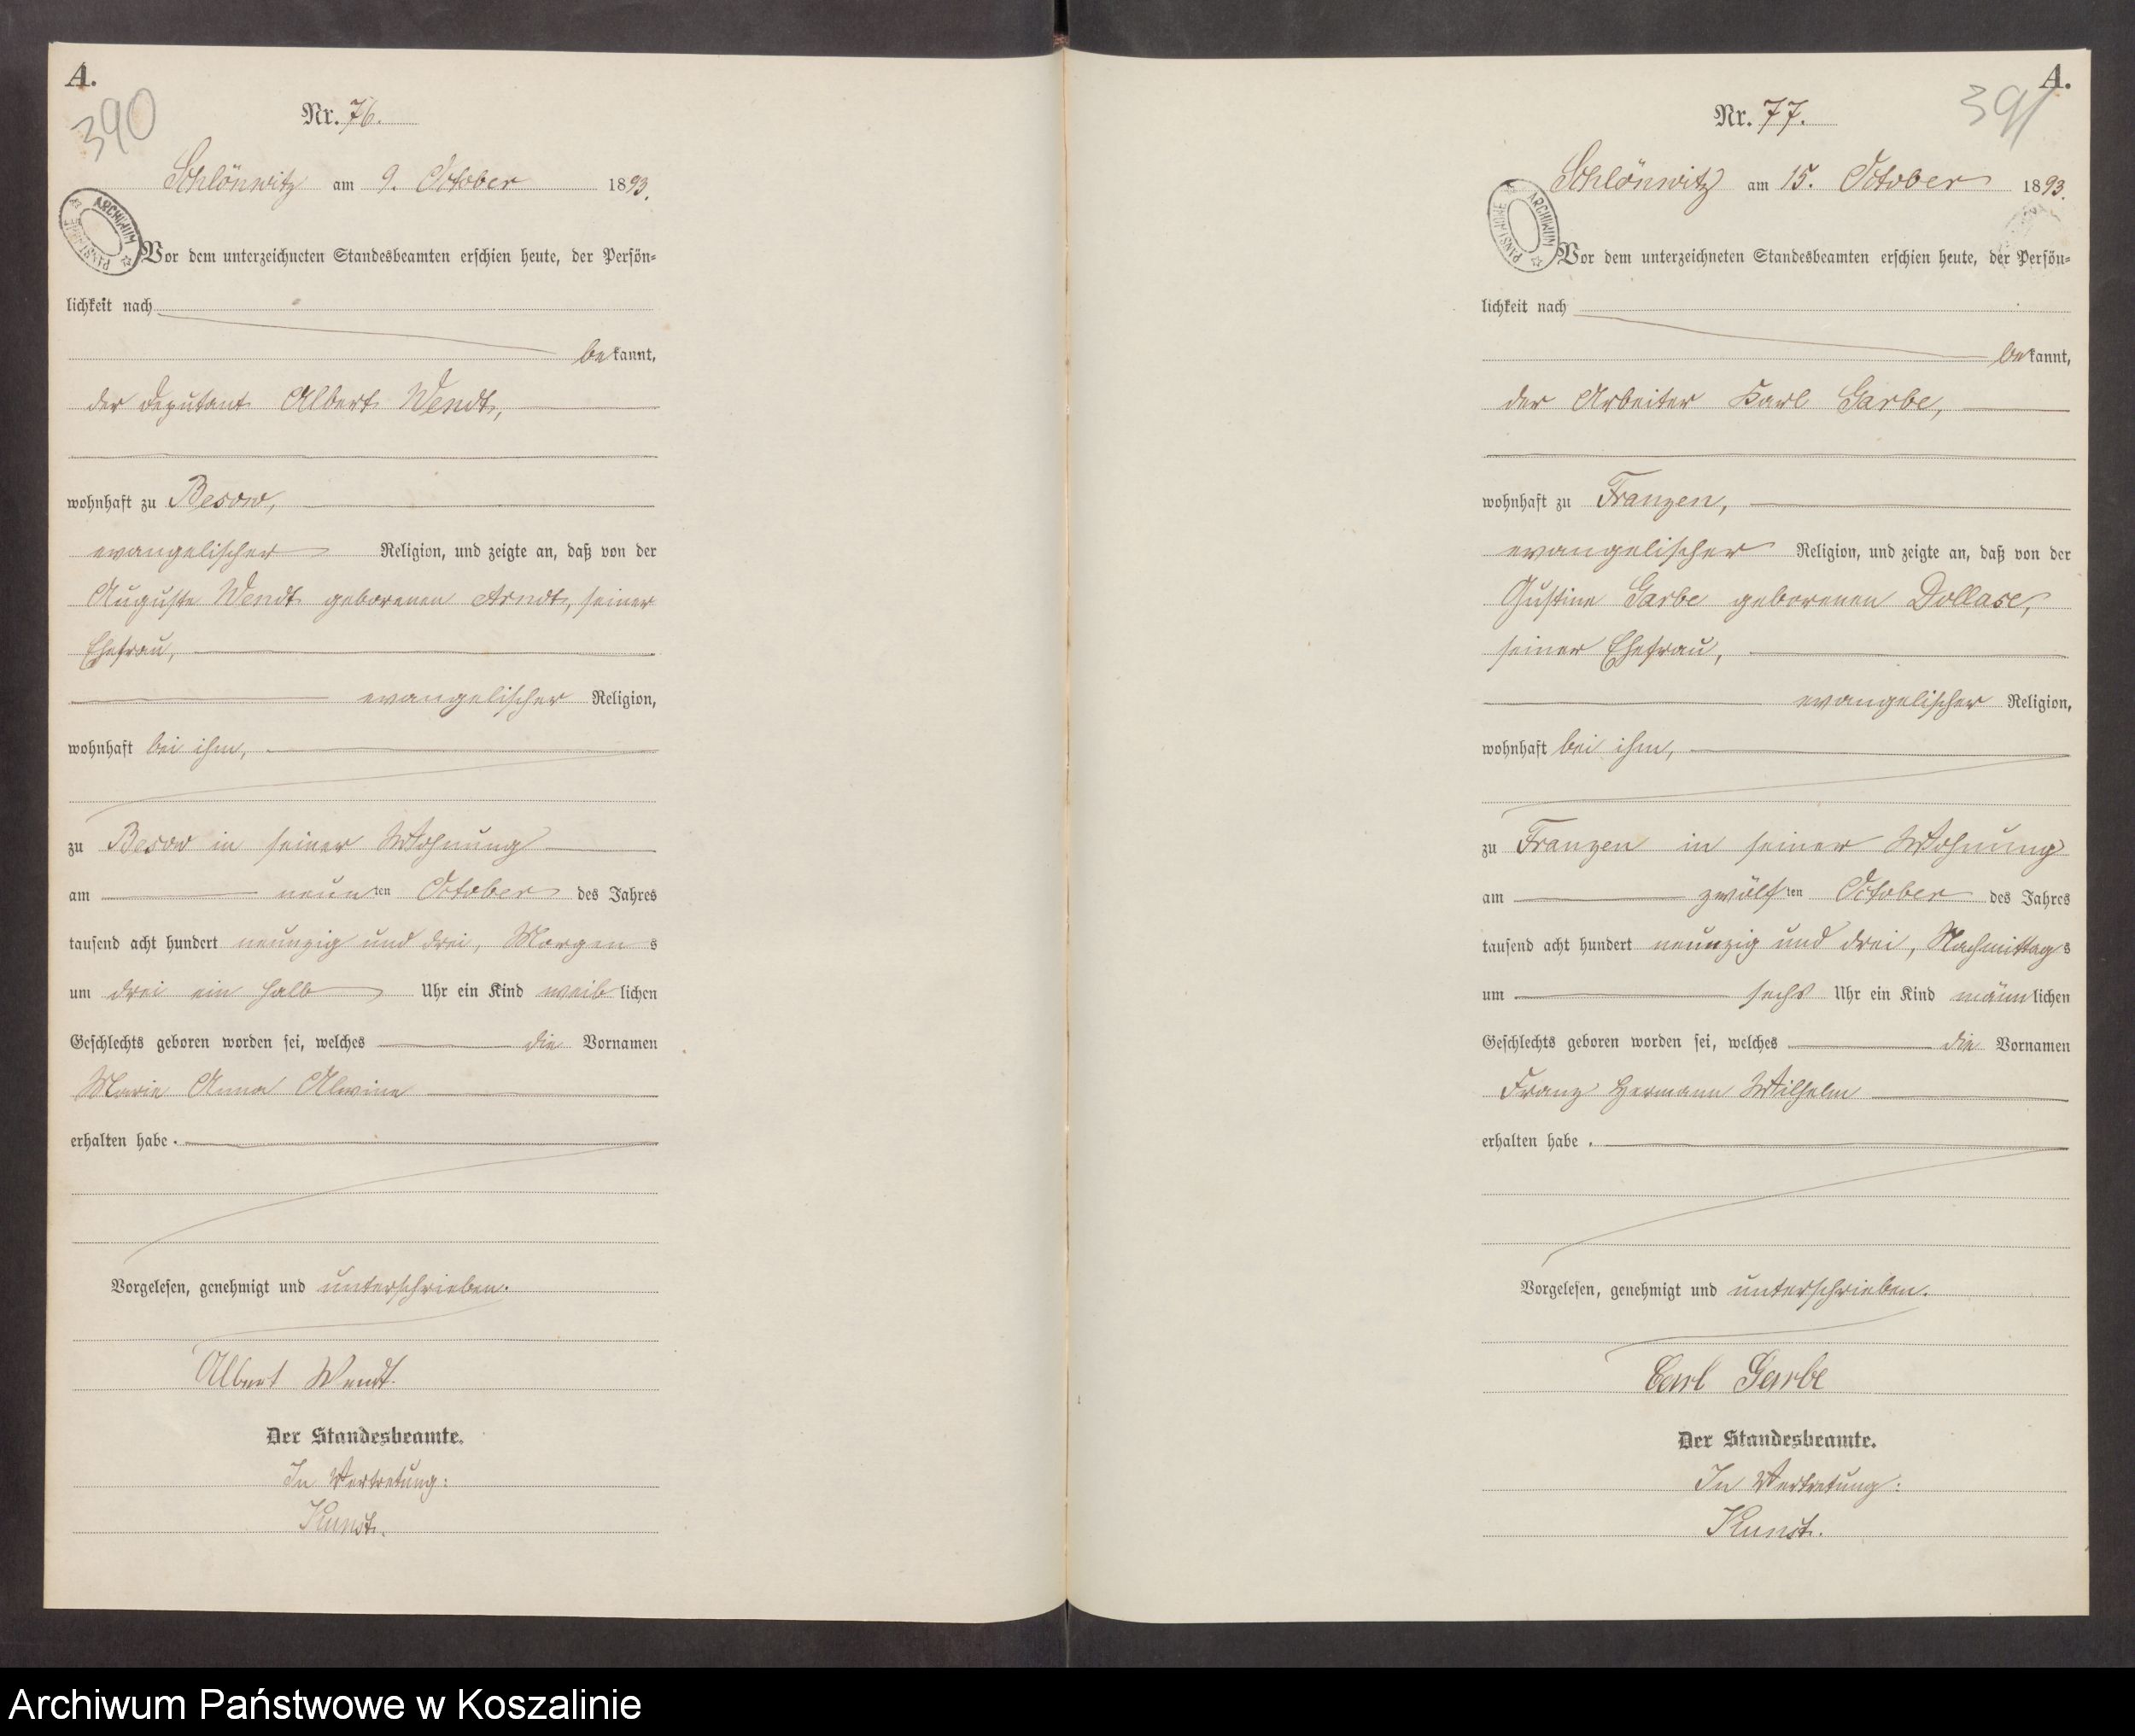 A.
390
Nr. 76.
Schlönwitz am 9. October 1893.
ARCHIWUM PAŃSTWOWE
Vor dem unterzeichneten Standesbeamten erschien heute, der Persön-
lichkeit nach
bekannt,
der Deputant Albert Wendt,
wohnhaft zu Besow,
evangelischer Religion, und zeigte an, daß von der
Auguste Wendt geborenen Arndt, seiner
Ehefrau,
evangelischer Religion,
wohnhaft bei ihm,
zu Besow in seiner Wohnung
am neunten October des Jahres
tausend acht hundert neunzig und drei, Morgens
um drei ein halb Uhr ein Kind weiblichen
Geschlechts geboren worden sei, welches die Vornamen
Marie Anna Alwine
erhalten habe.
Vorgelesen, genehmigt und unterschrieben.
Albert Wendt.
Der Standesbeamte.
In Vertretung:
Kunst.
A.
391
Nr. 77.
Schlönwitz am 15. October 1893.
ARCHIWUM PAŃSTWOWE
Vor dem unterzeichneten Standesbeamten erschien heute, der Persön-
lichkeit nach
bekannt,
der Arbeiter Karl Garbe,
wohnhaft zu Franzen,
evangelischer Religion, und zeigte an, daß von der
Gustine Garbe geborenen Dollase,
seiner Ehefrau,
evangelischer Religion,
wohnhaft bei ihm,
zu Franzen in seiner Wohnung
am zwölften October des Jahres
tausend acht hundert neunzig und drei, Nachmittags
um sechs Uhr ein Kind männlichen
Geschlechts geboren worden sei, welches die Vornamen
Franz Hermann Wilhelm
erhalten habe.
Vorgelesen, genehmigt und unterschrieben.
Carl Garbe
Der Standesbeamte.
In Vertretung:
Kunst.
Archiwum Państwowe w Koszalinie